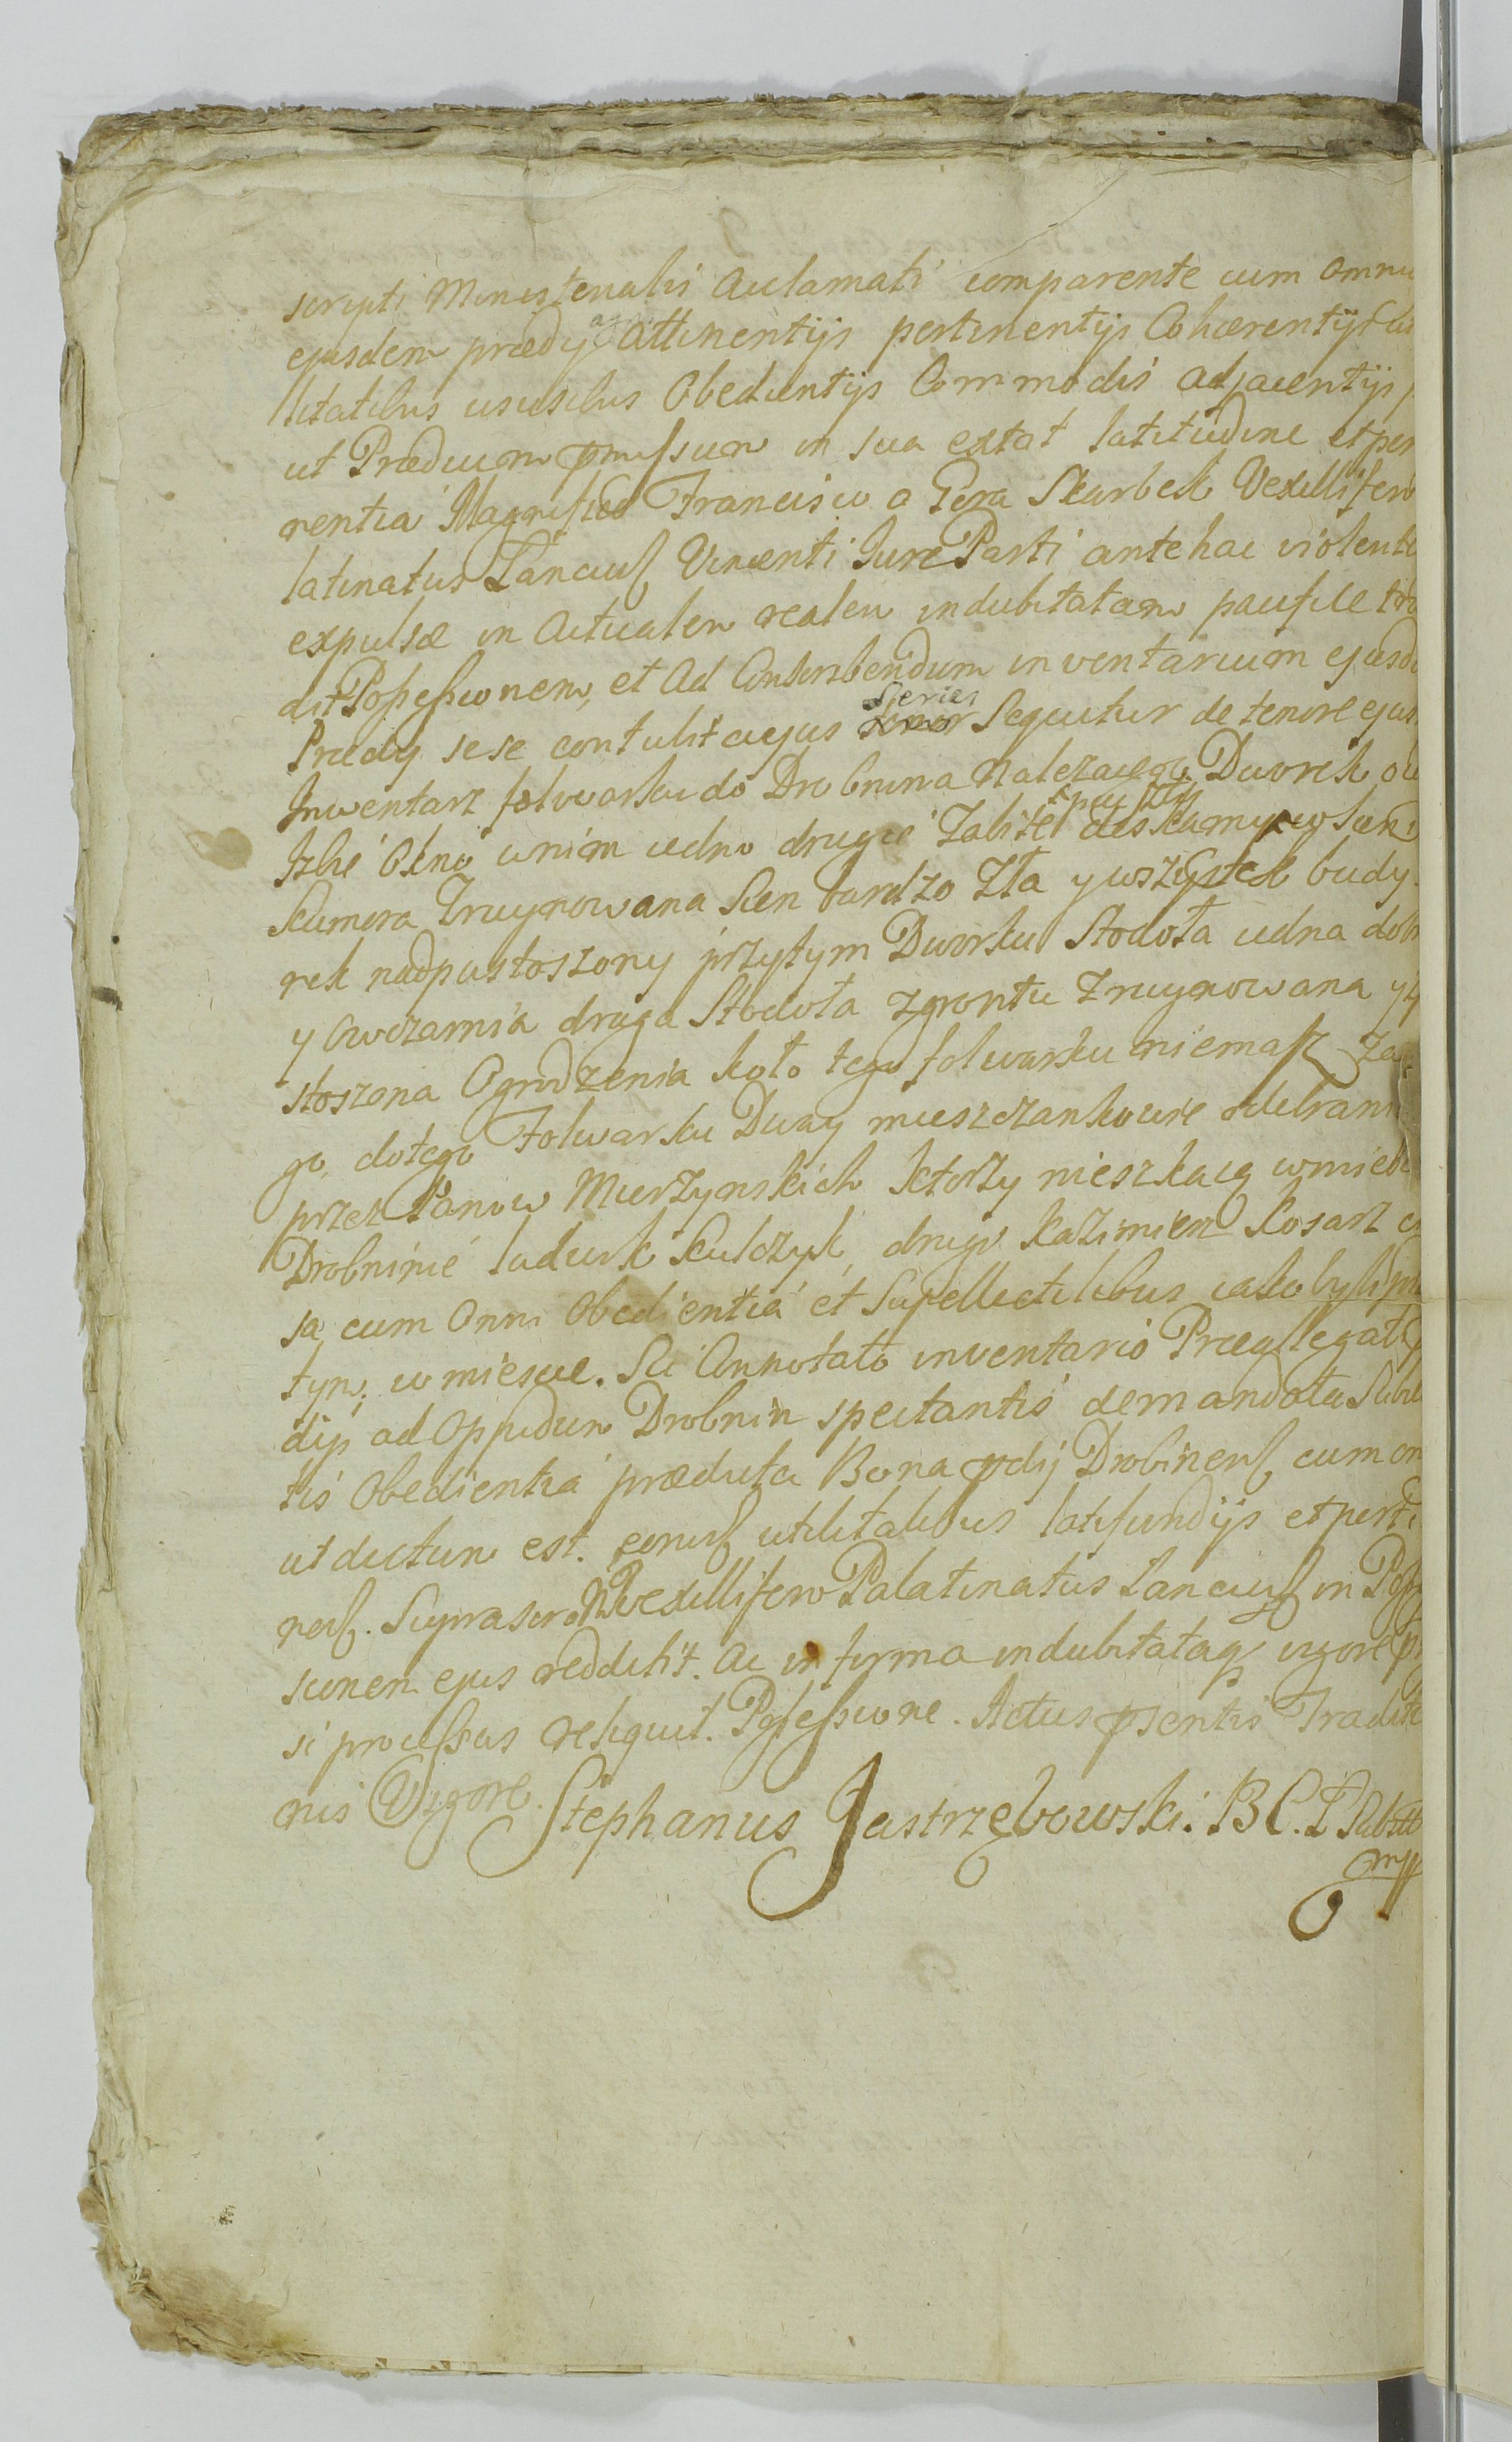 scripti Ministerialis Acclamati comparente cum omni
ejusdem prædij Attinentijs pertinentijs Cohærentijs
litatibus usibus Obedientijs Commodis adjacentijs
ut Prædium pmissum in sua extat latitudine et per
rentia Magnifico Francisco a Gora Skarbek Vexillifero
latinatus Lanciſ Vincenti Jure Parti antehac violente
expulsæ in Actualem realem indubitatam pacifice tra
dit Possessionem, et Ad Conscribendum inventarium ejusd
Prædij sese contulit cujus Series Sequitur de tenore ejus
Inwentarz folwarku do Drobnina Nalezącego Dworek
Izbie Okno wnim iedno drugie Zabite deskamy w Sieni
Kumora Zruynowana Sien bardzo Zła y wszystek budy
rek nadpustoszony przytym Dworku Stodoła iedna dob
y Owczarnia druga Stodoła zgrontu Zruynowana y
stoszona Ogrodzenia koło tego folwarku niemasz
go, do tego Folwarku Dway mieszczankowie odebrani
przez Panow Mierzynskich ktorzy mieszkaią wmiescie
Drobninie Kulczyk, drugi Kazimierz Kosarz
sa, cum Omni Obedientia et Supellectilibus iako byli
tym, w miescie. Sic Connotato inventario Præ
dij ad Oppidum Drobnin spectantis demandata
tis Obedientia prædicta Bona pdij Drobinenſ cum
ut dictum est. eorum utilitatibus latifundijs et perti
nenſ. Suprascro Vexillifero Palatinatus Lanciſ in
sionem ejus reddidit. Ac in firma indubitataq vigore
si processus reliquit. Possessione. Actus psentis Tradit
nis Vigore.
Stephanus Jastrzębowski. B C. L
mpp